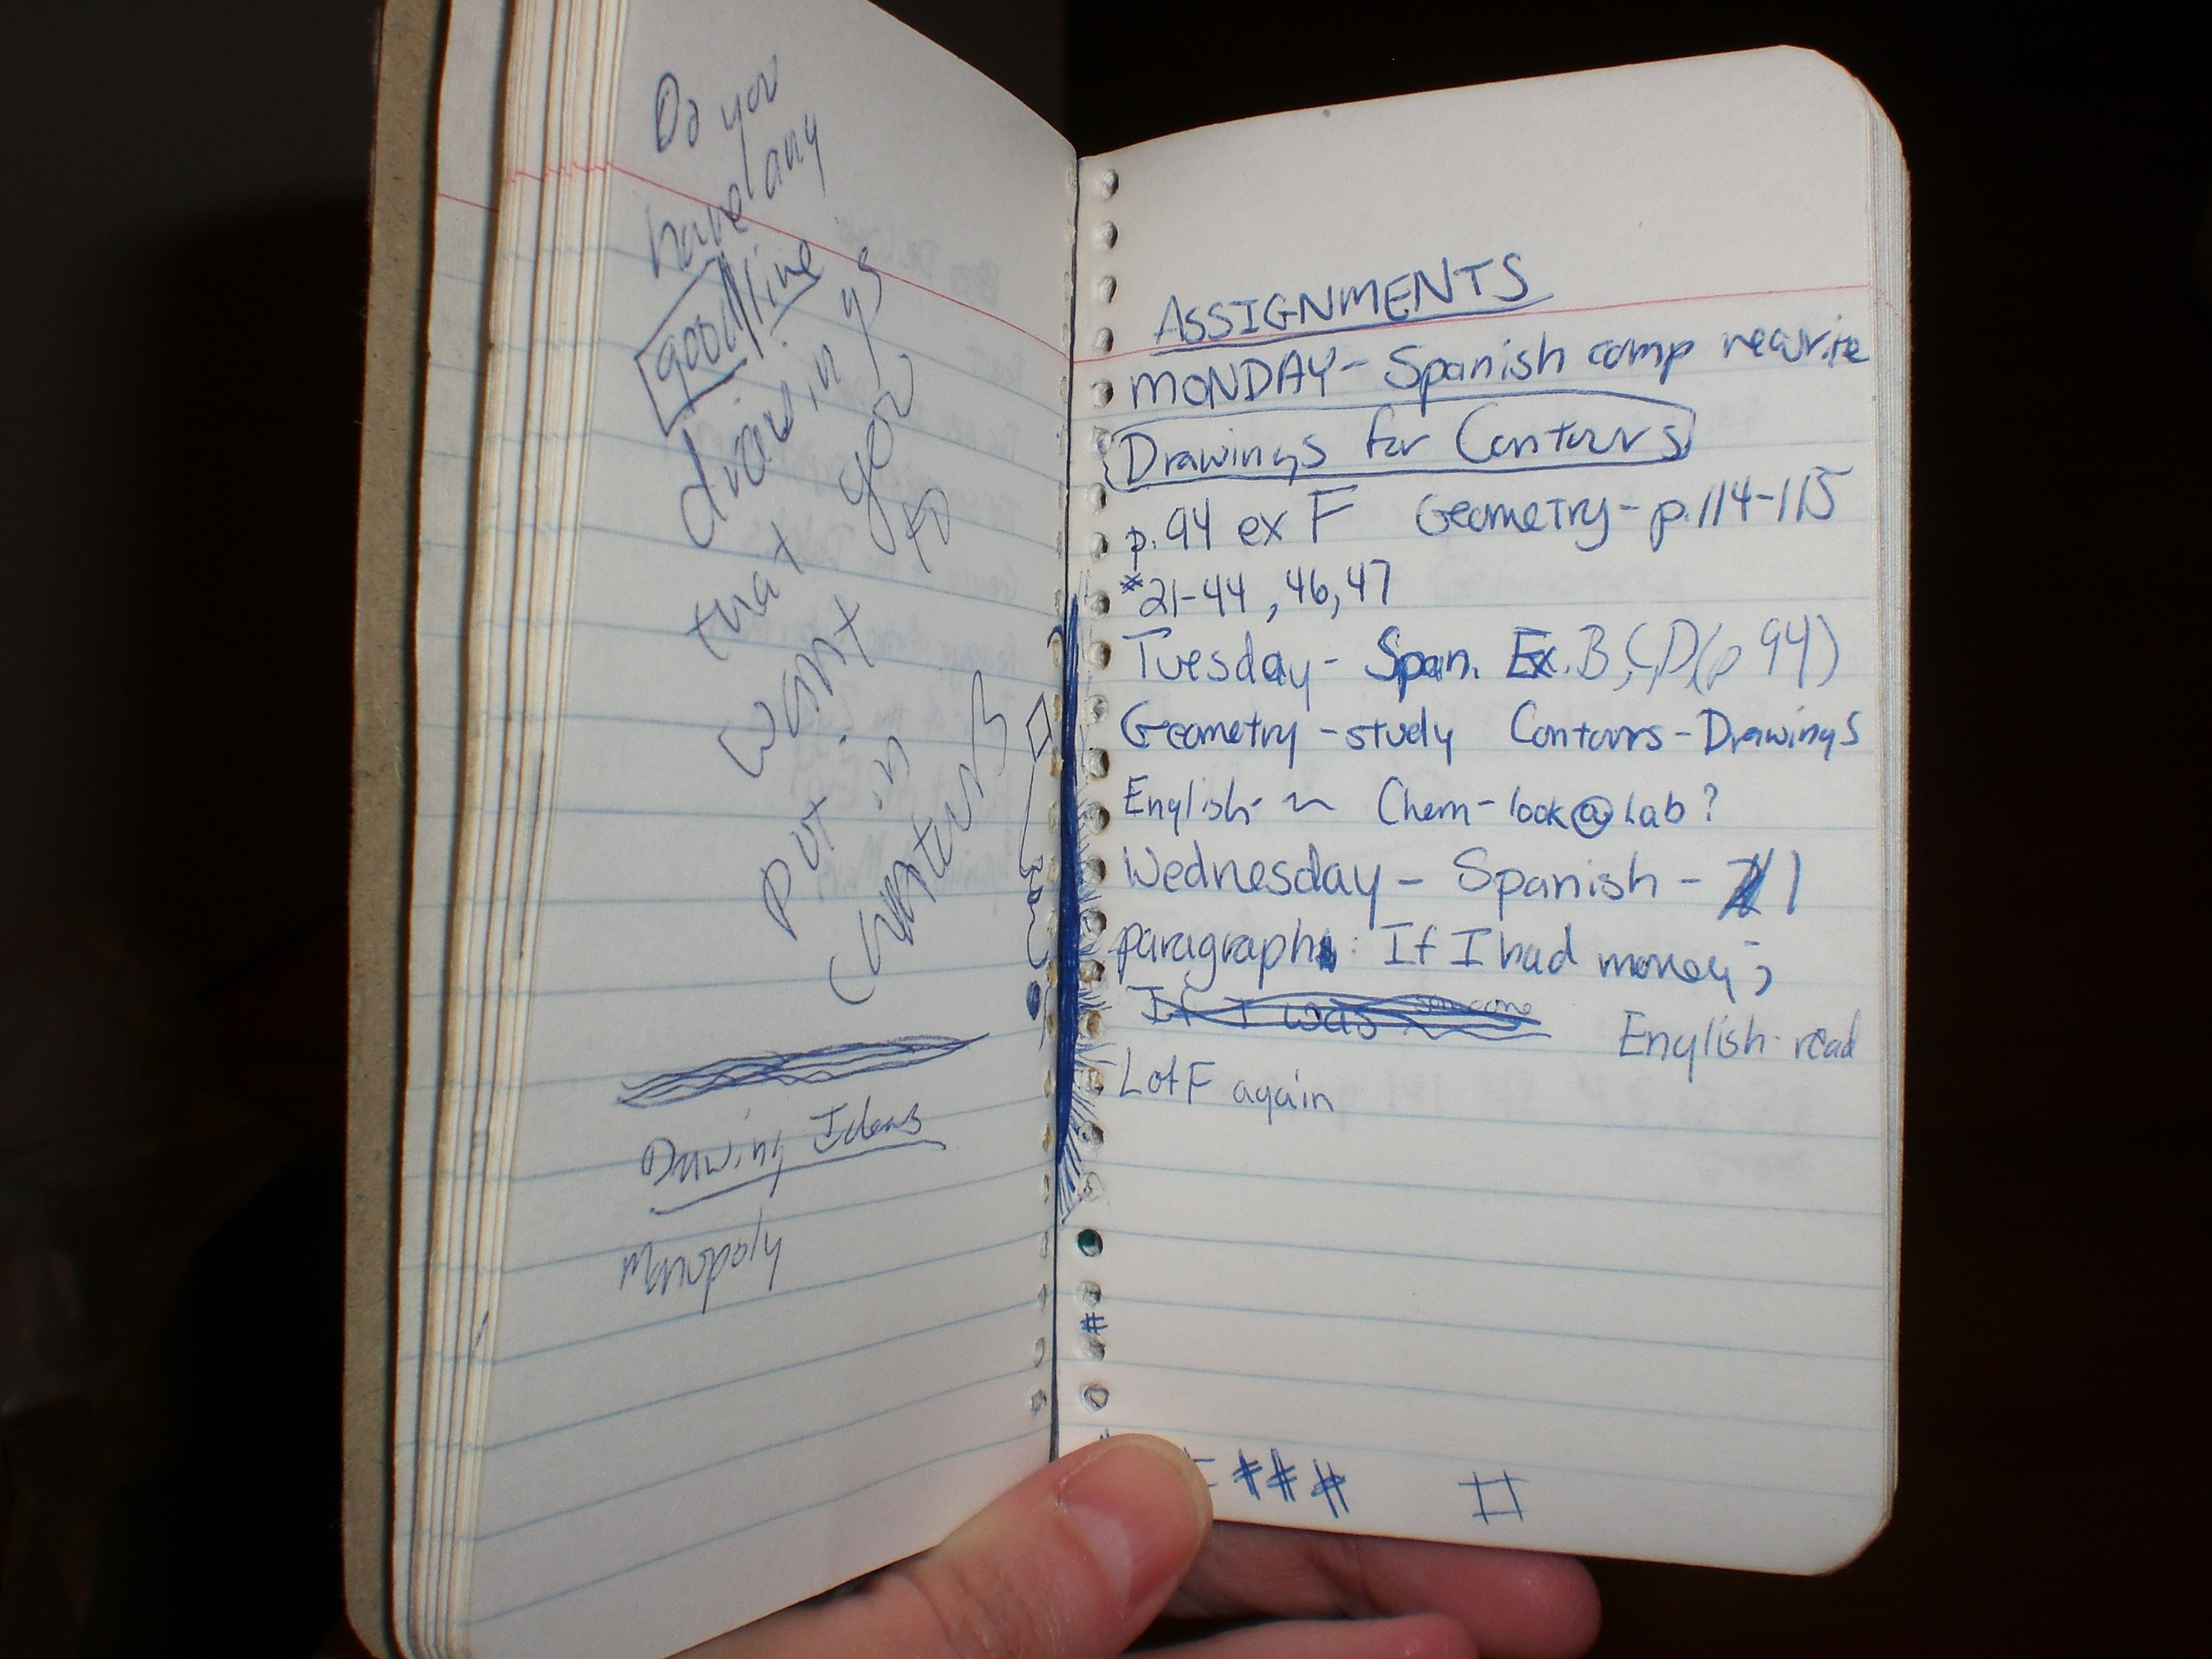 Do you
have any
good line
drawings
that you
want to
put in
Contours
Drawing Ideas
Monopoly
ASSIGNMENTS
MONDAY - Spanish comp rewrite
Drawings for Contours
p.94 ex F Geometry - p.114-115
#21-44, 46, 47
Tuesday - Span. Ex. B, C, D (p 94)
Geometry - study Contours - Drawings
English - ~ Chem - look @ Lab?
Wednesday - Spanish - 1
paragraph : If I had money;
If I was someone
English - read
LotF again
#
# # # #